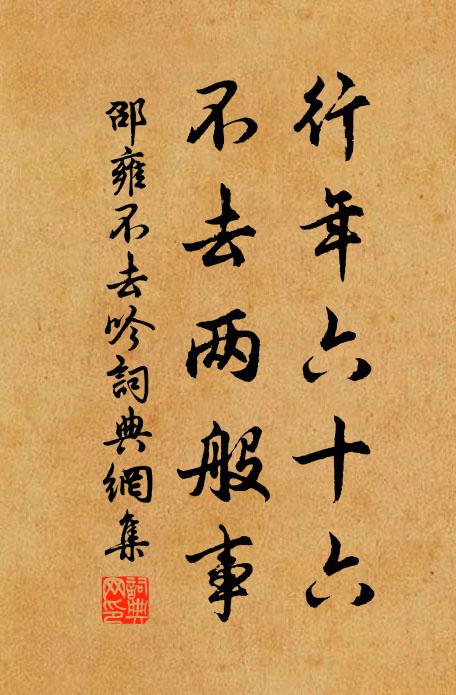 行年六十六
不去两般事
邵雍不去吟詞典網集
詞典
网印